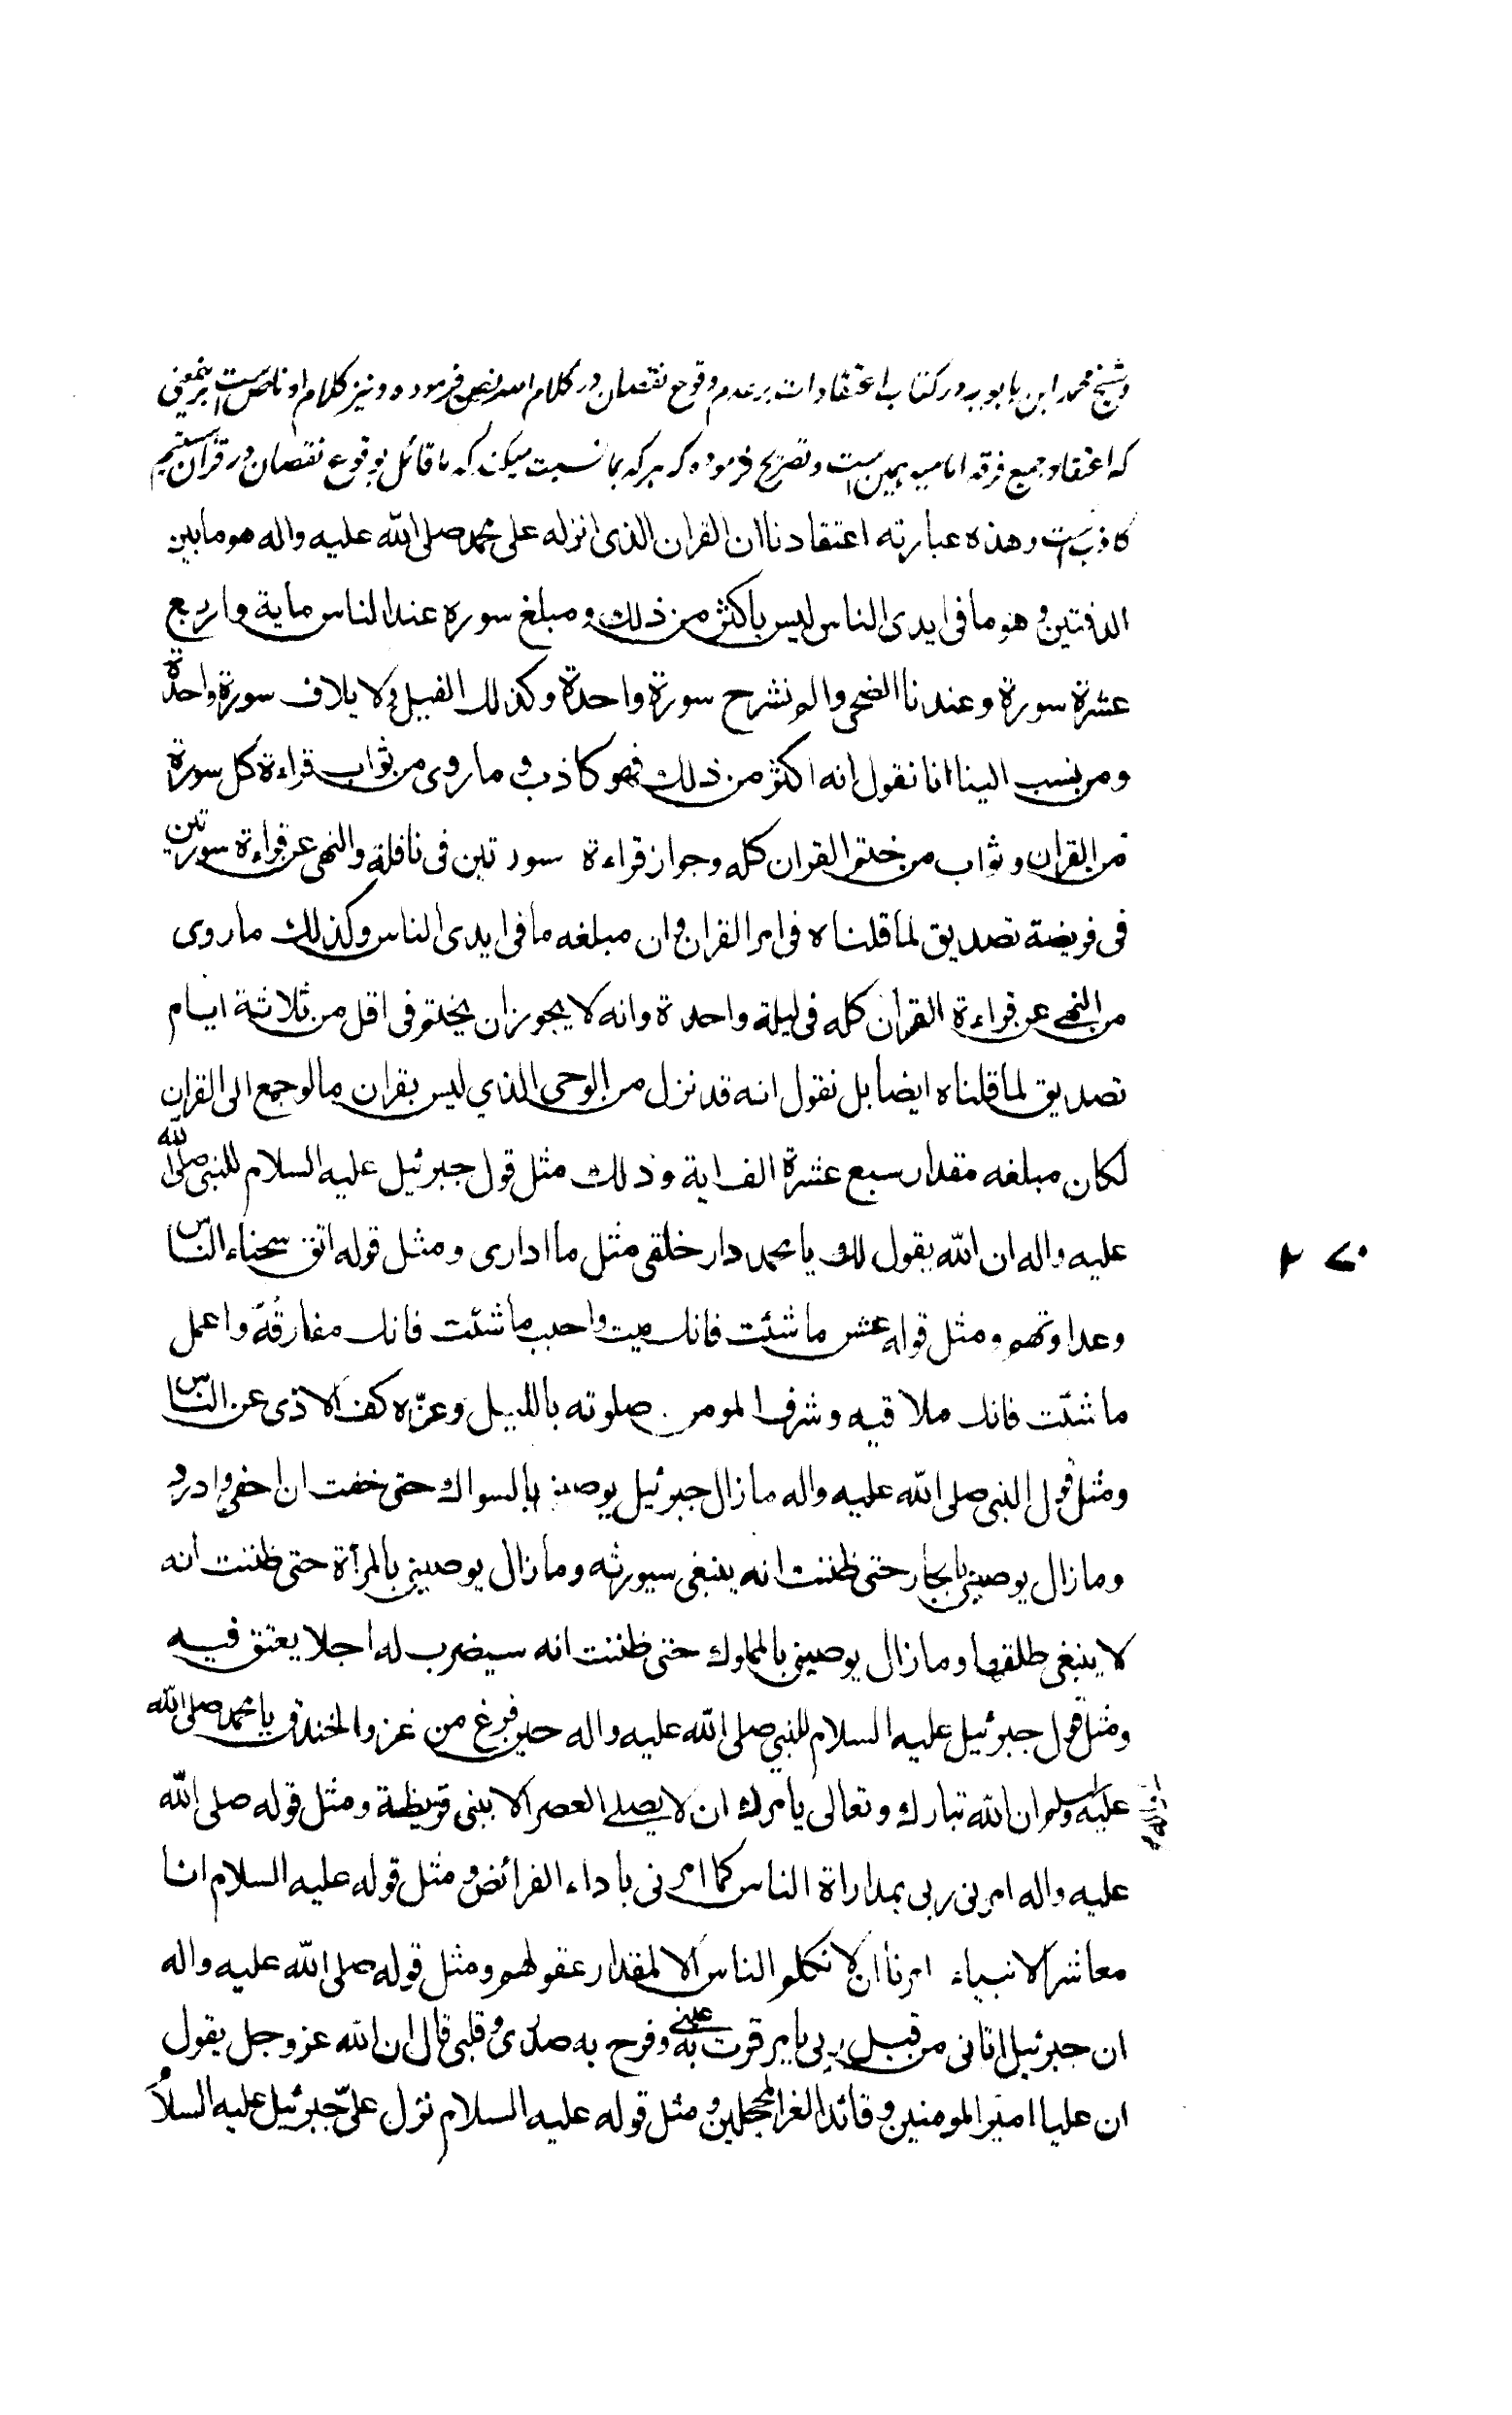 و شیخ محمد ابن بابویه در کتاب اعتقادات بر عدم وقوع نقصان در کلام الله نص فرموده و نیز کلام او ناص است بر ینمعنی
که اعتقاد جمیع فرقه امامیه همین است و تصریح فرموده که هر که بما نسبت میکند که ما قائل بوقوع نقصان در قرآن هستیم
کاذب است وهذه عبارته اعتقادنا ان القران الذی انزله علی محمد صلی الله علیه واله هو مابین
الدفتین وهو ما فی ایدی الناس لیس باکثر من ذلك ومبلغ سوره عند الناس مایة واربع
عشرة سورة وعندنا الضحی والم نشرح سورة واحدة وکذلك الفیل ولایلاف سورة واحدة
ومن نسب الینا انا نقول انه اکثر من ذلك فهو کاذب وما روی من ثواب قراءة کل سورة
من القران وثواب من ختم القران کله وجواز قراءة سورتین فی نافلة والنهی عن قراءة سورتین
فی فریضة تصدیق لما قلناه فی امر القران وان مبلغه ما فی ایدی الناس وکذلك ما روی
من النهی عن قراءة القران کله فی لیلة واحدة وانه لا یجوز ان یختم فی اقل من ثلاثة ایام
تصدیق لما قلناه ایضا بل نقول انه قد نزل من الوحی الذی لیس بقران ما لو جمع الی القران
لکان مبلغه مقدار سبع عشرة الف ایة وذلك مثل قول جبرئیل علیه السلام للنبی صلی الله
علیه واله ان الله یقول لك یا محمد دار خلقی مثل ما اداری ومثل قوله اتق شحناء الناس
۲۷۰
وعداوتهم ومثل قوله عش ما شئت فانك میت واحبب ما شئت فانك مفارقه واعمل
ما شئت فانك ملاقیه وشرف المومن صلوته باللیل وعزه کف الاذی عن الناس
ومثل قول النبی صلی الله علیه واله مازال جبرئیل یوصینی بالسواك حتی خفت ان احفی وادرد
ومازال یوصینی بالجار حتی ظننت انه ینبغی سیورثه ومازال یوصینی بالمرأة حتی ظننت انه
لا ینبغی طلقها ومازال یوصینی بالمملوك حتی ظننت انه سیضرب له اجلا یعتق فیه
ومثل قول جبرئیل علیه السلام للنبی صلی الله علیه واله حین فرغ من غزو الخندق یا محمد صلی الله
علیه وسلم ان الله تبارك وتعالی یامرك ان لا یصلی العصر الا ببنی قریظة ومثل قوله صلی الله
علیه واله امرنی ربی بمداراة الناس کما امرنی باداء الفرائض ومثل قوله علیه السلام انا
معاشر الانبیاء امرنا ان لا نکلم الناس الا لمقدار عقولهم ومثل قوله صلی الله علیه واله
ان جبرئیل اتانی من قبل ربی بامر قرت به عینی وفرح به صدری وقلبی قال ان الله عز وجل یقول
ان علیا امیر المومنین وقائد الغر المحجلین ومثل قوله علیه السلام نزل علیّ جبرئیل علیه السلام